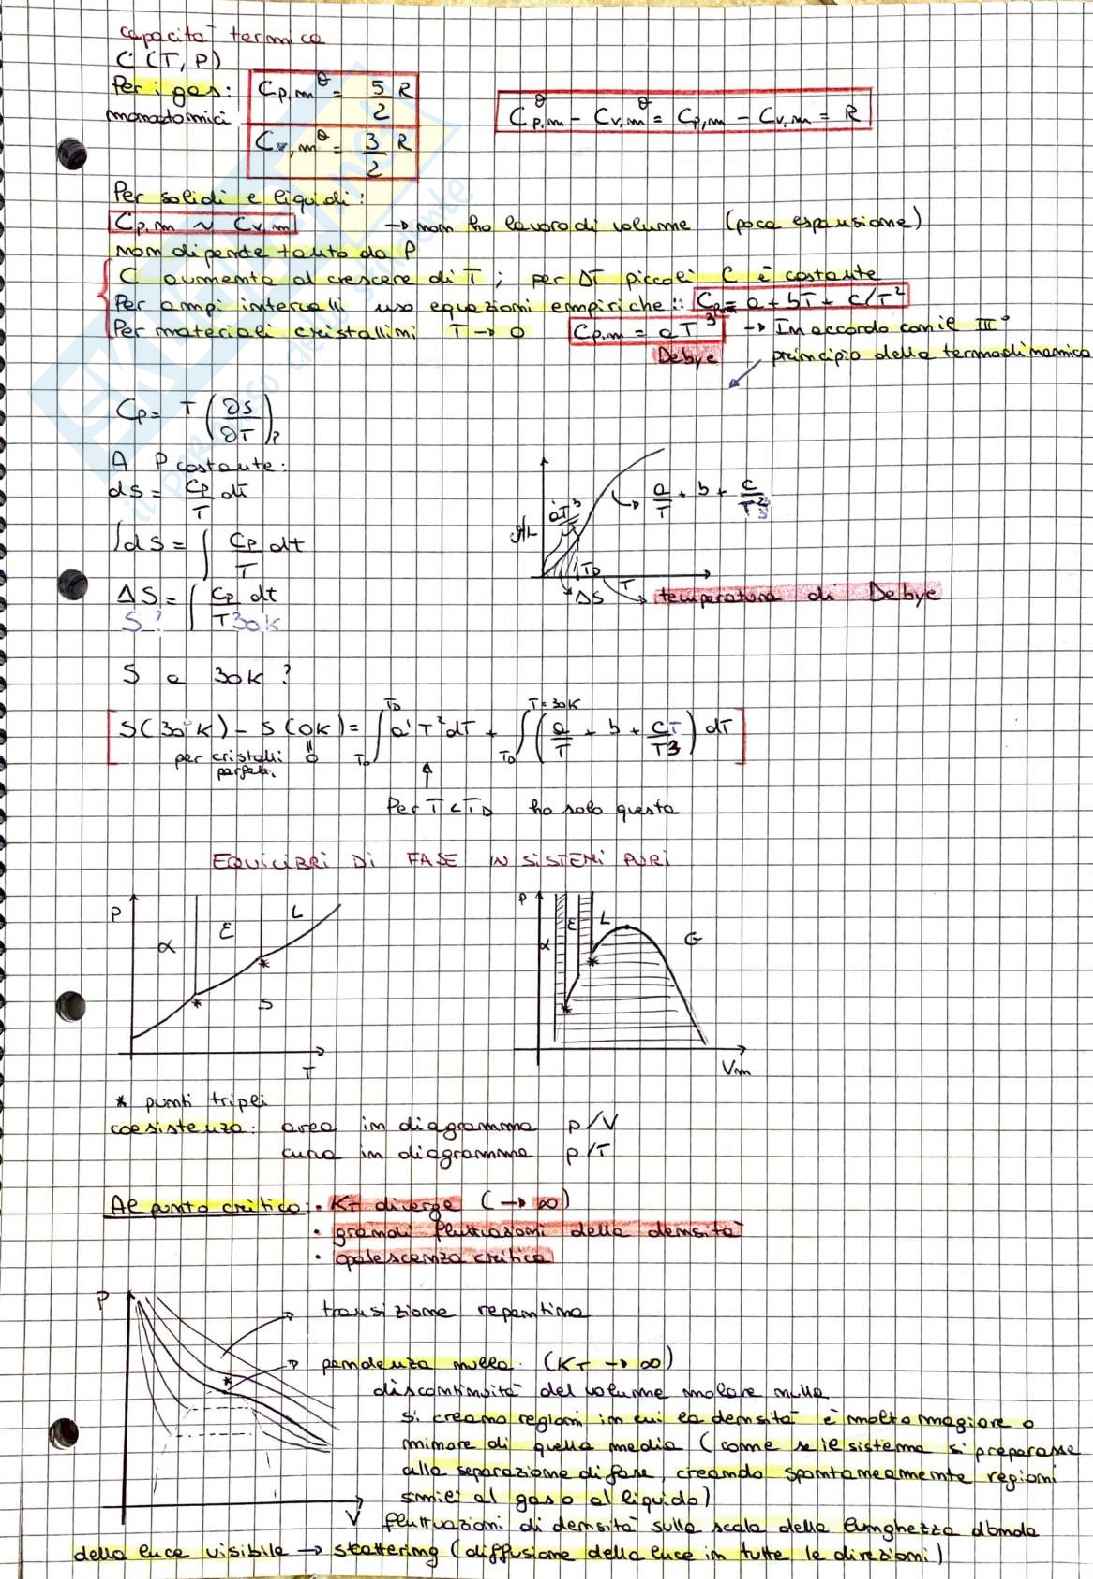 capacità termica
C (T, P)
Per i gas: Cp,m^θ = 5/2 R
monoatomici
Cv,m^θ = 3/2 R
Cp,m^θ - Cv,m^θ = Cp,m - Cv,m = R
Per solidi e liquidi:
Cp,m ~ Cv,m → non ho lavoro di volume (poca espansione)
non dipende tanto da P
C aumenta al crescere di T ; per ΔT piccoli C è costante
Per ampi intervalli uso equazioni empiriche: Cp = a + bT + c/T²
Per materiali cristallini T → 0 Cp,m = aT³ → In accordo con il III°
Debye principio della termodinamica
Cp = T (∂S/∂T)p
A P costante:
dS = Cp/T dt
∫dS = ∫ Cp/T dt
ΔS = ∫ Cp/T dt
S? 30K
a/T + b + c/T³
TD
T
ΔS temperatura di Debye
S a 30K ?
S(30°K) - S(0K) = ∫ a'T²dT + ∫ (a/T + b + cT/T3) dT
TD T=30K
per cristalli 0 T0 TD
perfetti
Per T<TD ho solo questo
EQUILIBRI DI FASE IN SISTEMI PURI
P α ε L S T
P α ε L G Vm
* punti tripli
coesistenza: area in diagramma p/V
curva in diagramma p/T
Al punto critico: • KT diverge (→ ∞)
• grandi fluttuazioni della densità
• opalescenza critica
P
→ transizione repentina
→ pendenza nulla. (KT → ∞)
discontinuità del volume molare nulla
si creano regioni in cui la densità è molto magiore o
minore di quella media (come se il sistema si preparasse
alla separazione di fase, creando spontaneamente regioni
simili al gas o al liquido)
V fluttuazioni di densità sulla scala della lunghezza d'onda
della luce visibile → scattering (diffusione della luce in tutte le direzioni)